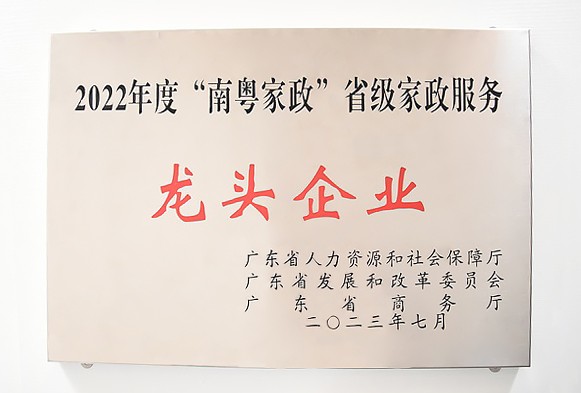 2022年度“南粤家政”省级家政服务
龙头企业
广东省人力资源和社会保障厅
广东省发展和改革委员会
广东省商务厅
二〇二三年七月